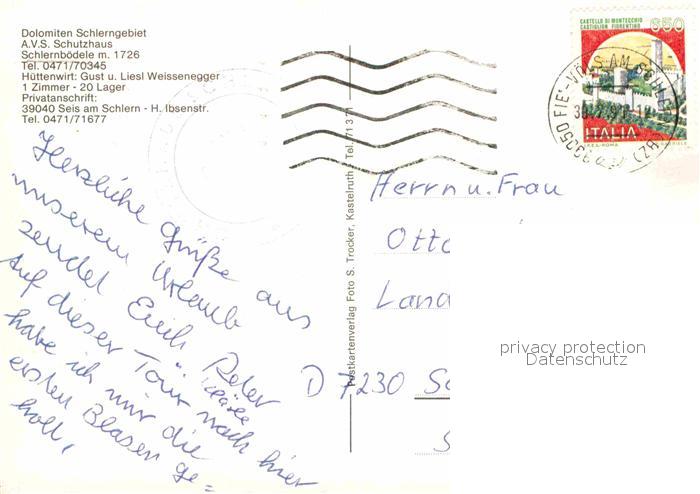 Dolomiten Schlerngebiet
A.V.S. Schutzhaus
Schlernbödele m. 1726
Tel. 0471/70345
Hüttenwirt: Gust u. Liesl Weissenegger
1 Zimmer - 20 Lager
Privatanschrift:
39040 Seis am Schlern - H. Ibsenstr.
Tel. 0471/71677
Herzliche Grüße aus
unserem Urlaub
sendet Euch Peter
Auf dieser Tour nach hier
habe ich mir die
ersten Blasen ge=
holt,
Postkartenverlag Foto S. Trocker, Kastelruth / Tel. 71371
CASTELLO DI MONTECCHIO
CASTIGLION FIORENTINO
650
ITALIA
I.P.Z.S. ROMA
39050 FIE'-VÖLS AM SCHLERN (BZ)
Herrn u. Frau
Otto
Land
D 7230 Sc
S
privacy protection
Datenschutz